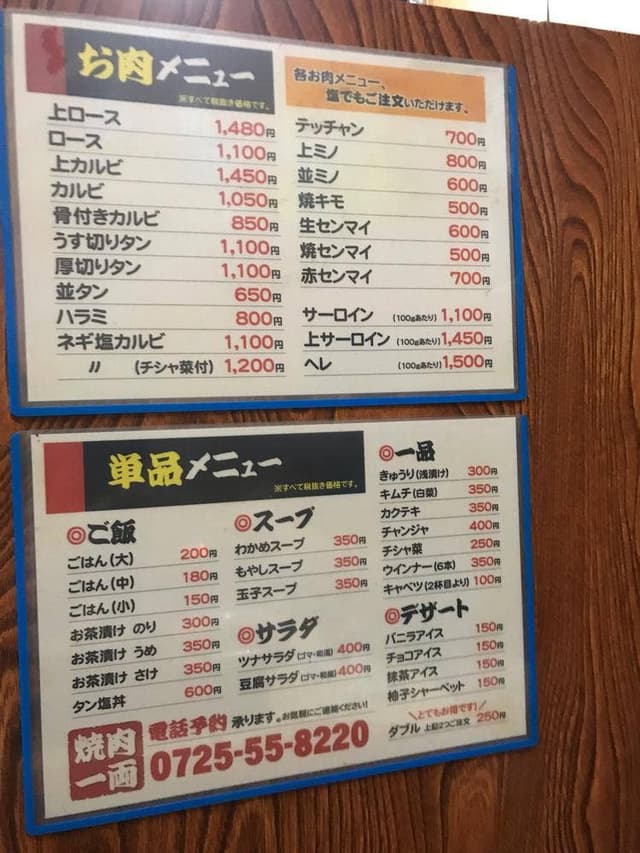 お肉メニュー
※すべて税抜き価格です。
上ロース 1,480円
ロース 1,100円
上カルビ 1,450円
カルビ 1,050円
骨付きカルビ 850円
うす切りタン 1,100円
厚切りタン 1,100円
並タン 650円
ハラミ 800円
ネギ塩カルビ 1,100円
〃 (チシャ菜付) 1,200円
各お肉メニュー、
塩でもご注文いただけます。
テッチャン 700円
上ミノ 800円
並ミノ 600円
焼キモ 500円
生センマイ 600円
焼センマイ 500円
赤センマイ 700円
サーロイン (100gあたり) 1,100円
上サーロイン (100gあたり) 1,450円
ヘレ (100gあたり) 1,500円
単品メニュー
※すべて税抜き価格です。
◎ご飯
ごはん(大) 200円
ごはん(中) 180円
ごはん(小) 150円
お茶漬け のり 300円
お茶漬け うめ 350円
お茶漬け さけ 350円
タン塩丼 600円
◎スープ
わかめスープ 350円
もやしスープ 350円
玉子スープ 350円
◎サラダ
ツナサラダ(ゴマ・和風) 400円
豆腐サラダ(ゴマ・和風) 400円
◎一品
きゅうり(浅漬け) 300円
キムチ(白菜) 350円
カクテキ 350円
チャンジャ 400円
チシャ菜 250円
ウインナー(6本) 350円
キャベツ(2杯目より) 100円
◎デザート
バニラアイス 150円
チョコアイス 150円
抹茶アイス 150円
柚子シャーベット 150円
\とてもお得です!/
ダブル 上記2つご注文 250円
焼肉
一画
電話予約 承ります。お気軽にご連絡ください!
0725-55-8220